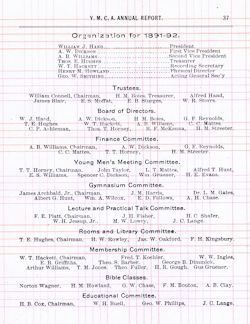 Y. M. C. A. ANNUAL REPORT. 37
Organization for 1891-92.
WILLIAM J. HAND President
A. W. DICKSON First Vice President
A. B. WILLIAMS Second Vice President
THOS. E. HUGHES Treasurer
W. T. HACKETT Recording Secretary
HENRY M. HOWLAND Physical Director
GEO. W. Acting General Sec'y
Trustees.
William Connell, Chairman, H. M. Boies, Treasurer, Alfred Hand,
James Blair, E. S. Moffat, E. B. Sturges, W. R. Storrs.
Board of Directors.
W. J. Hand, A. W. Dickson, H. M. Boies, G. F. Reynolds,
T. E. Hughes, W. T. Hackett, A. B. Williams, C. C. Mattes,
C. F. Thos. T. Horney, H. F. H. M. Streeter.
Finance Committee.
A. B. Williams, Chairman, A. W. Dickson, G. F. Reynolds,
C. C. Mattes, T. T. Horney, H. M. Streeter.
Young Men's Meeting Committee.
T. T. Horney, Chairman, John Taylor, L. T. Mattes, Alfred T. Hunt,
E. S. Williams, Spencer C. Dickson, Wm. Graener, H. E. Evans.
Gymnasium Committee.
James Archbald, Jr., Chairman, J. M. Harris, Dr. L. M. Gates,
Albert G. Hunt, Wm. A. Wilcox, E. D. Fellows, A. H. Chase.
Lecture and Practical Talk Committee.
F. E. Platt, Chairman, J. H. Fisher, H. C. Shafer,
W. H. Jessup, Jr., M. W. Lowry, J. C. Lange.
Rooms and Library Committee.
T. E. Hughes, Chairman, H. W. Rowley, Jas. W. Oakford, F. H. Kingsbury.
Membership Committee.
W. T. Hackett, Chairman, Fred T. Koehler, W. W. Inglis,
E. B. Griffiths, Theo. S. Barber, George B. Dimmick,
Arthur Williams, T. M. Jones, Theo. Fuller, H. R. Gough, Gus Grosser.
Bible Classes.
Norton Wagner, H. M. Howland, G. W. Chase, F. M. Bouton, A. B. Clay.
Educational Committee.
H. B. Cox, Chairman, W. H. Buell, Geo. W. Phillips, J. C. Lange.